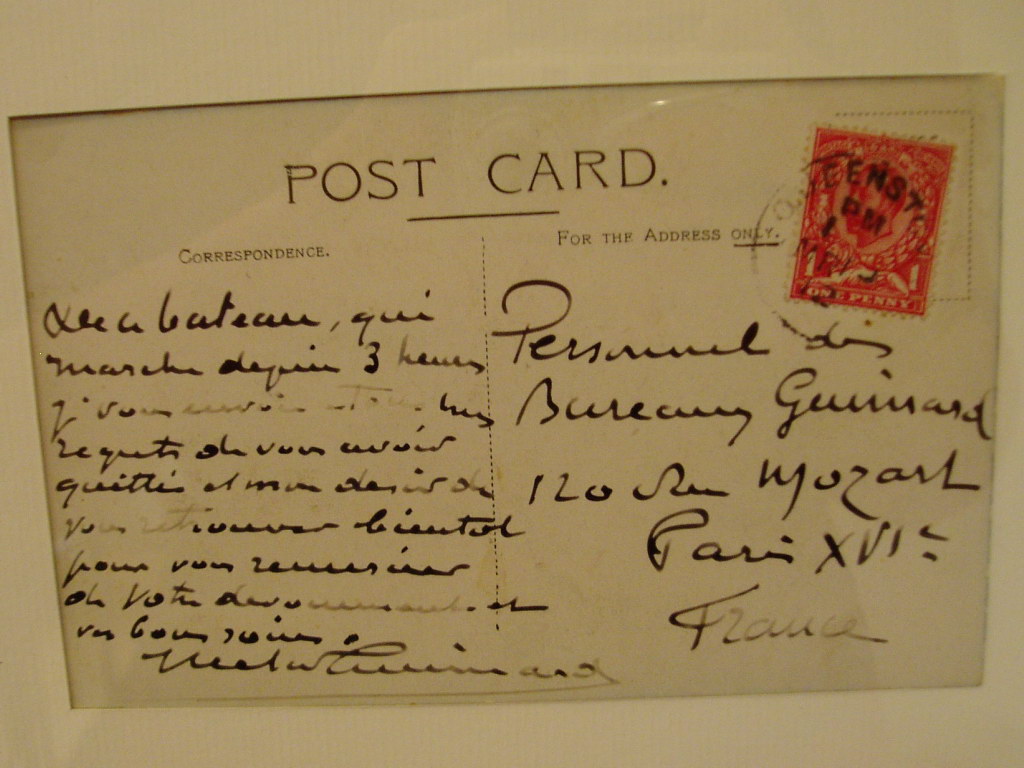 POST CARD.
CORRESPONDENCE.
FOR THE ADDRESS ONLY.
QUEENSTOWN
PM
MR
12
1 1
ONE PENNY
bateau, qui
marche depuis 3 heures
je vous envoie mes
regrets de vous avoir
quittés et mon désir de
vous retrouver bientôt
pour vous remercier
de votre dévouement et
vos bons soins.
Hector Guimard
Personnel des
Bureaux Guimard
120 Rue Mozart
Paris XVIe
France